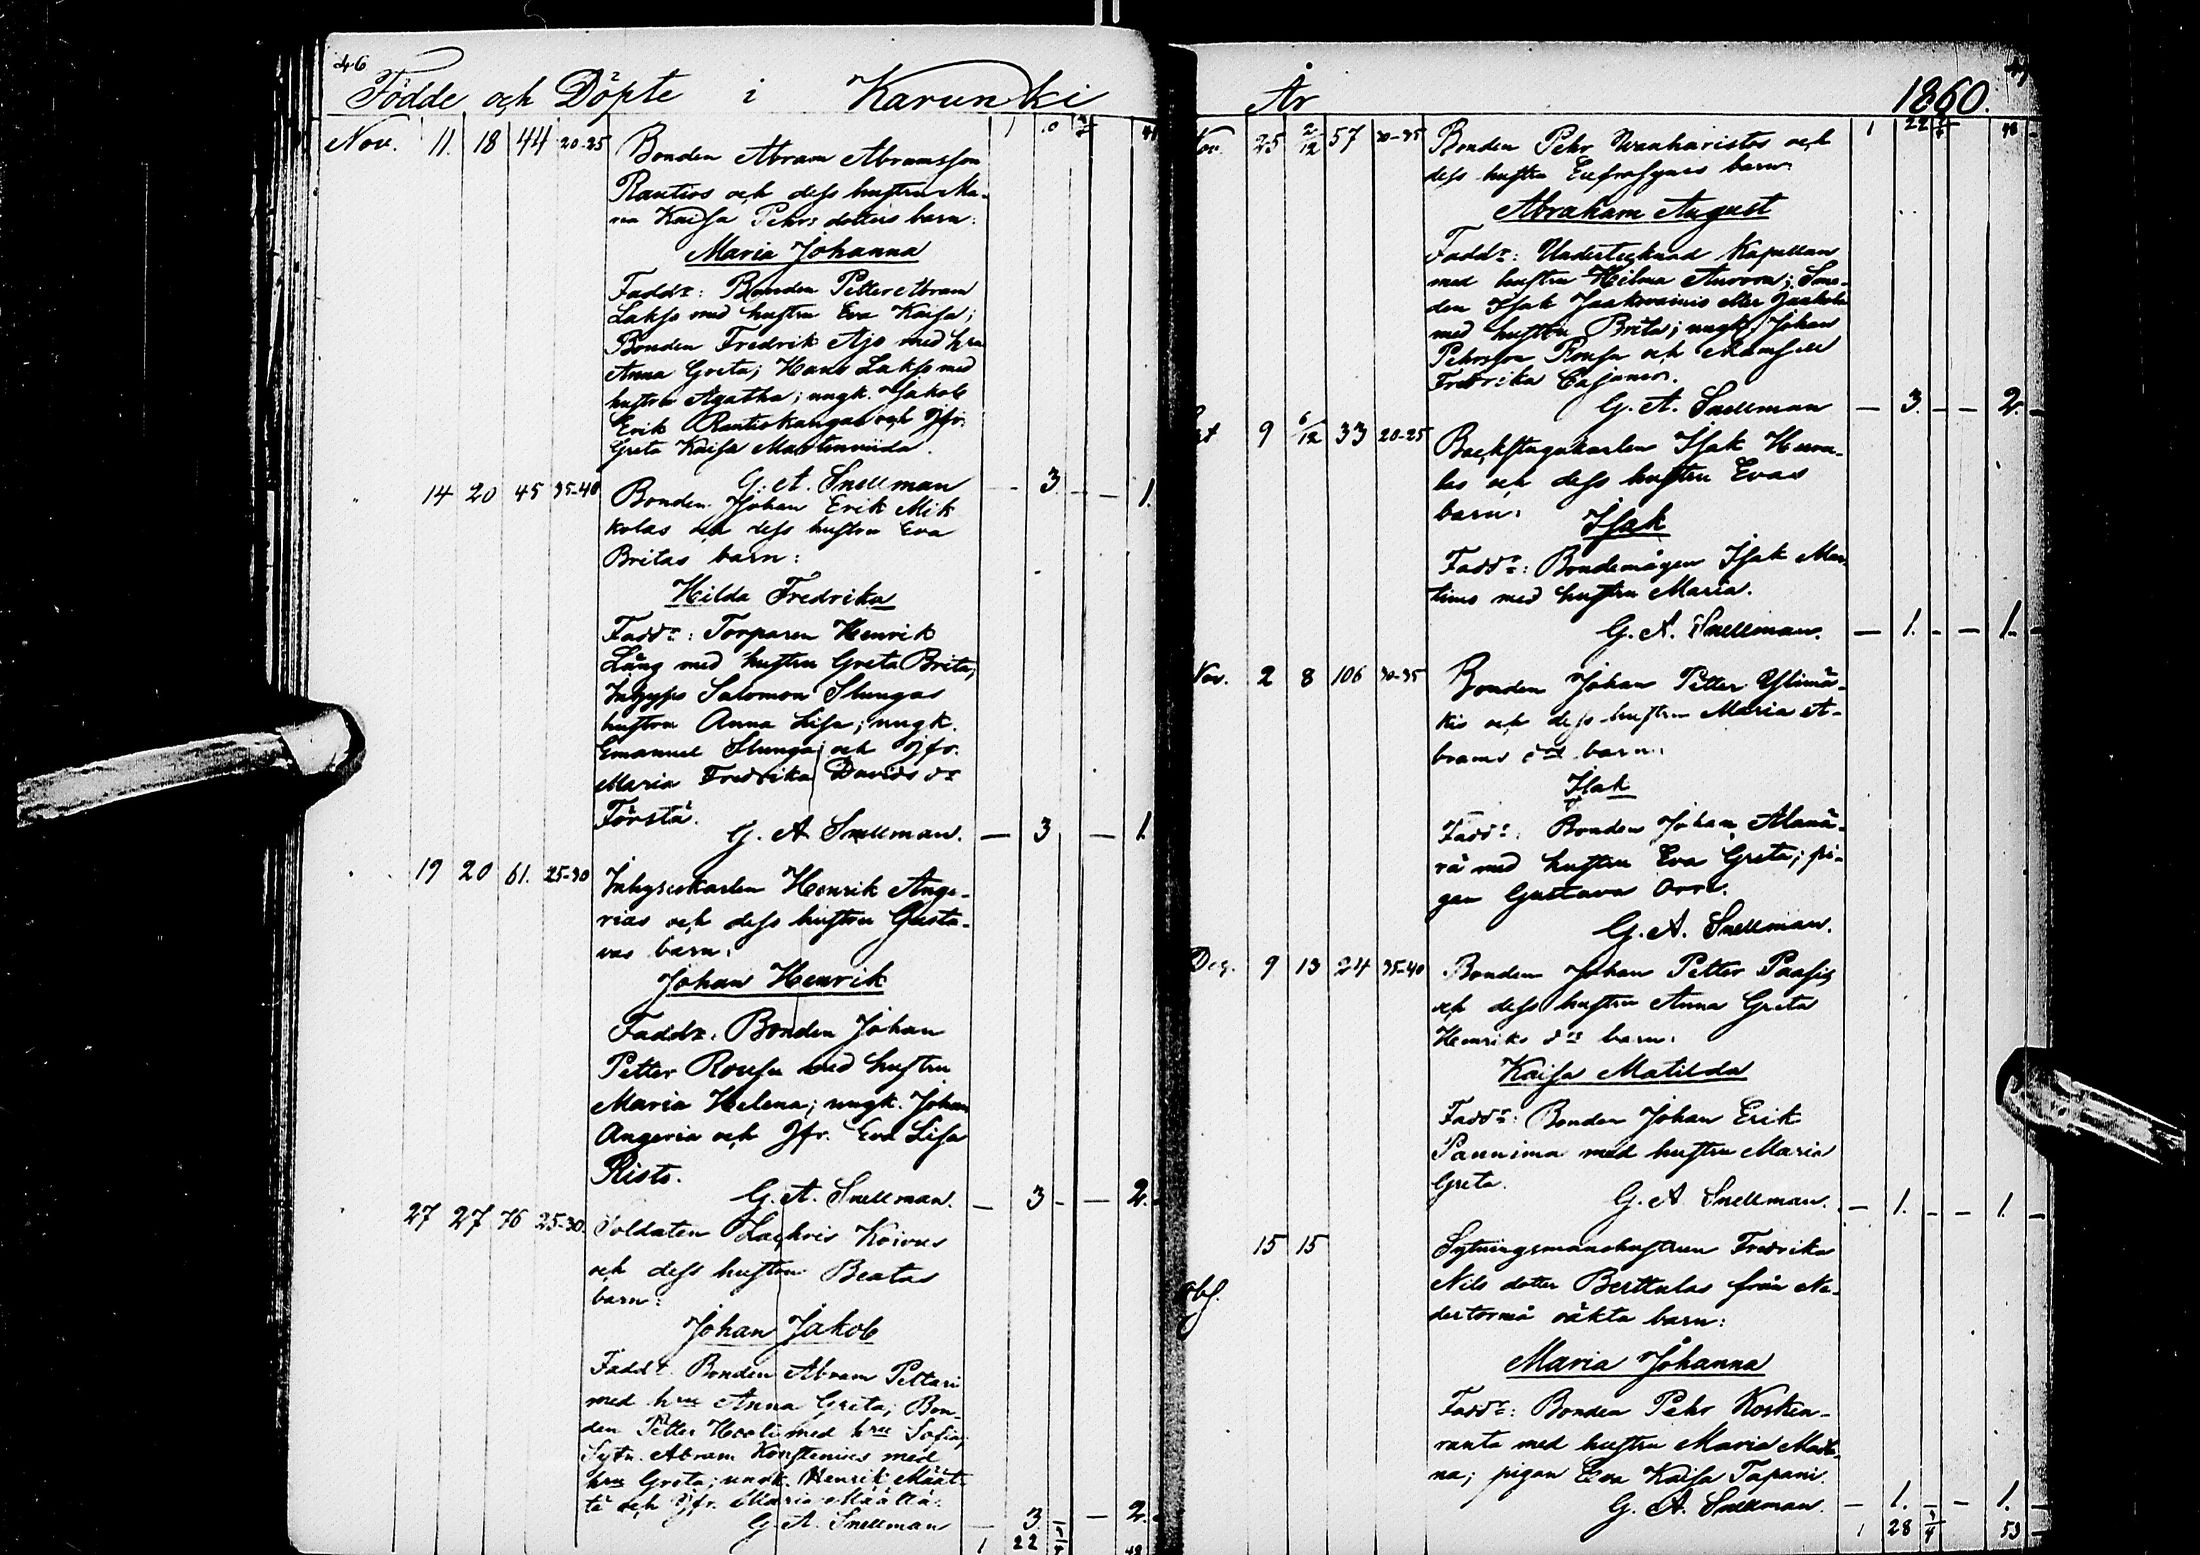 46
Födde och Döpte i Karunki
Nov. 11. 18 44 20-25 Bonden Abram Abramsson 1 .0
Rautios och dess hustru Ma-
ria Kaisa Pehrs dotters barn:
Maria Johanna
Fadd:r: Bonden Petter Abram
Lakso med hustru Eva Kaisa;
Bonden Fredrik Ajo med hru
Anna Greta; Hans Lakso med
hustru Agatha; ungk. Jakob
Erik Rautiokangas och Jfr.
Greta Kaisa
G. A. Snellman — 3. — — 1.
14 20 45 35-40 Bonden Johan Erik Mik
kolas och dess hustru Eva
Britas barn:
Hilda Fredrika
Fadd:r: Torparen Henrik
Lång med hustru Greta Brita;
Salomon Slungas
hustru Anna Lisa; ungk.
Emanuel Slunga; och Jfr.
Maria Fredrika Davids d:r
Förstä.
G. A. Snellman. — 3 — 1.
19 20 61. 25-30 Inhyseskarlen Henrik Ange-
rias och dess hustru Gusta-
vas barn:
Johan Henrik
Fadd:r: Bonden Johan
Petter Rousu med hustru
Maria Helena; ungk. Johan
Angeria och Jfr. Eva Lisa
Risto.
G. A. Snellman. — 3 — — 2. —
27 27 76 25-30. Soldaten Zachris Koivus
och dess hustru Beatas
barn:
Johan Jakob
Fadd:r Bonden Abram Pettari
med hru Anna Greta; Bon-
den Petter Hooli med hru Sofia;
Sytn. Abram Konstenius med
hru Greta; ungk. Henrik Määt-
tä och Jfr. Maria Määttä:
G. A. Snellman — 3. — — 2. —
1 22 48
År 1860.
Nov. 25 2/12 57 30-35 Bonden Pehr Wanharistos och 1 22 48 —
dess hustru Eufrosynes barn:
Abraham August
Fadd:r: Undertecknad Kapellan
med hustru Hilma Aurora; Sme-
den Isak Jaakovainio eller Jaakola
med hustru Brita; ungk. Johan
Pehrsson Rousu och Mamsell
Fredrika Cajanus.
G. A. Snellman — 3. — — 2. —
9 6/12 33 20-25 Backstugukarlen Isak
och dess hustru Evas
barn:
Isak
Fadd:r: Bondemågen Isak Mar-
timo med hustru Maria.
G. A. Snellman. — 1. — — 1. —
Nov. 2 8 106 30-35 Bonden Johan Petter Ylimä-
kis och dess hustru Maria A-
brams d:rs barn:
Isak
Fadd:r: Bonden Johan Alanä-
rä med hustru Eva Greta; pi-
gan Gustava Orre.
G. A. Snellman.
Dec. 9 13 24 35-40 Bonden Johan Petter Paasis
och dess hustru Anna Greta
Henriks d:rs barn:
Kaisa Matilda
Fadd:r: Bonden Johan Erik
Pannima med hustru Maria
Greta.
G. A. Snellman. — 1. — — 1. —
15 15 Sytningsmanshustrun Fredrika
Obs.
Nils dotter Berttulas från Ne-
dertorneå oäkta barn:
Maria Johanna
Fadd:r: Bonden Pehr Kosken-
ranta med hustru Maria
na; pigan Eva Kaisa Tapani.
G. A. Snellman. — 1. — — 1. —
1 28 53 —